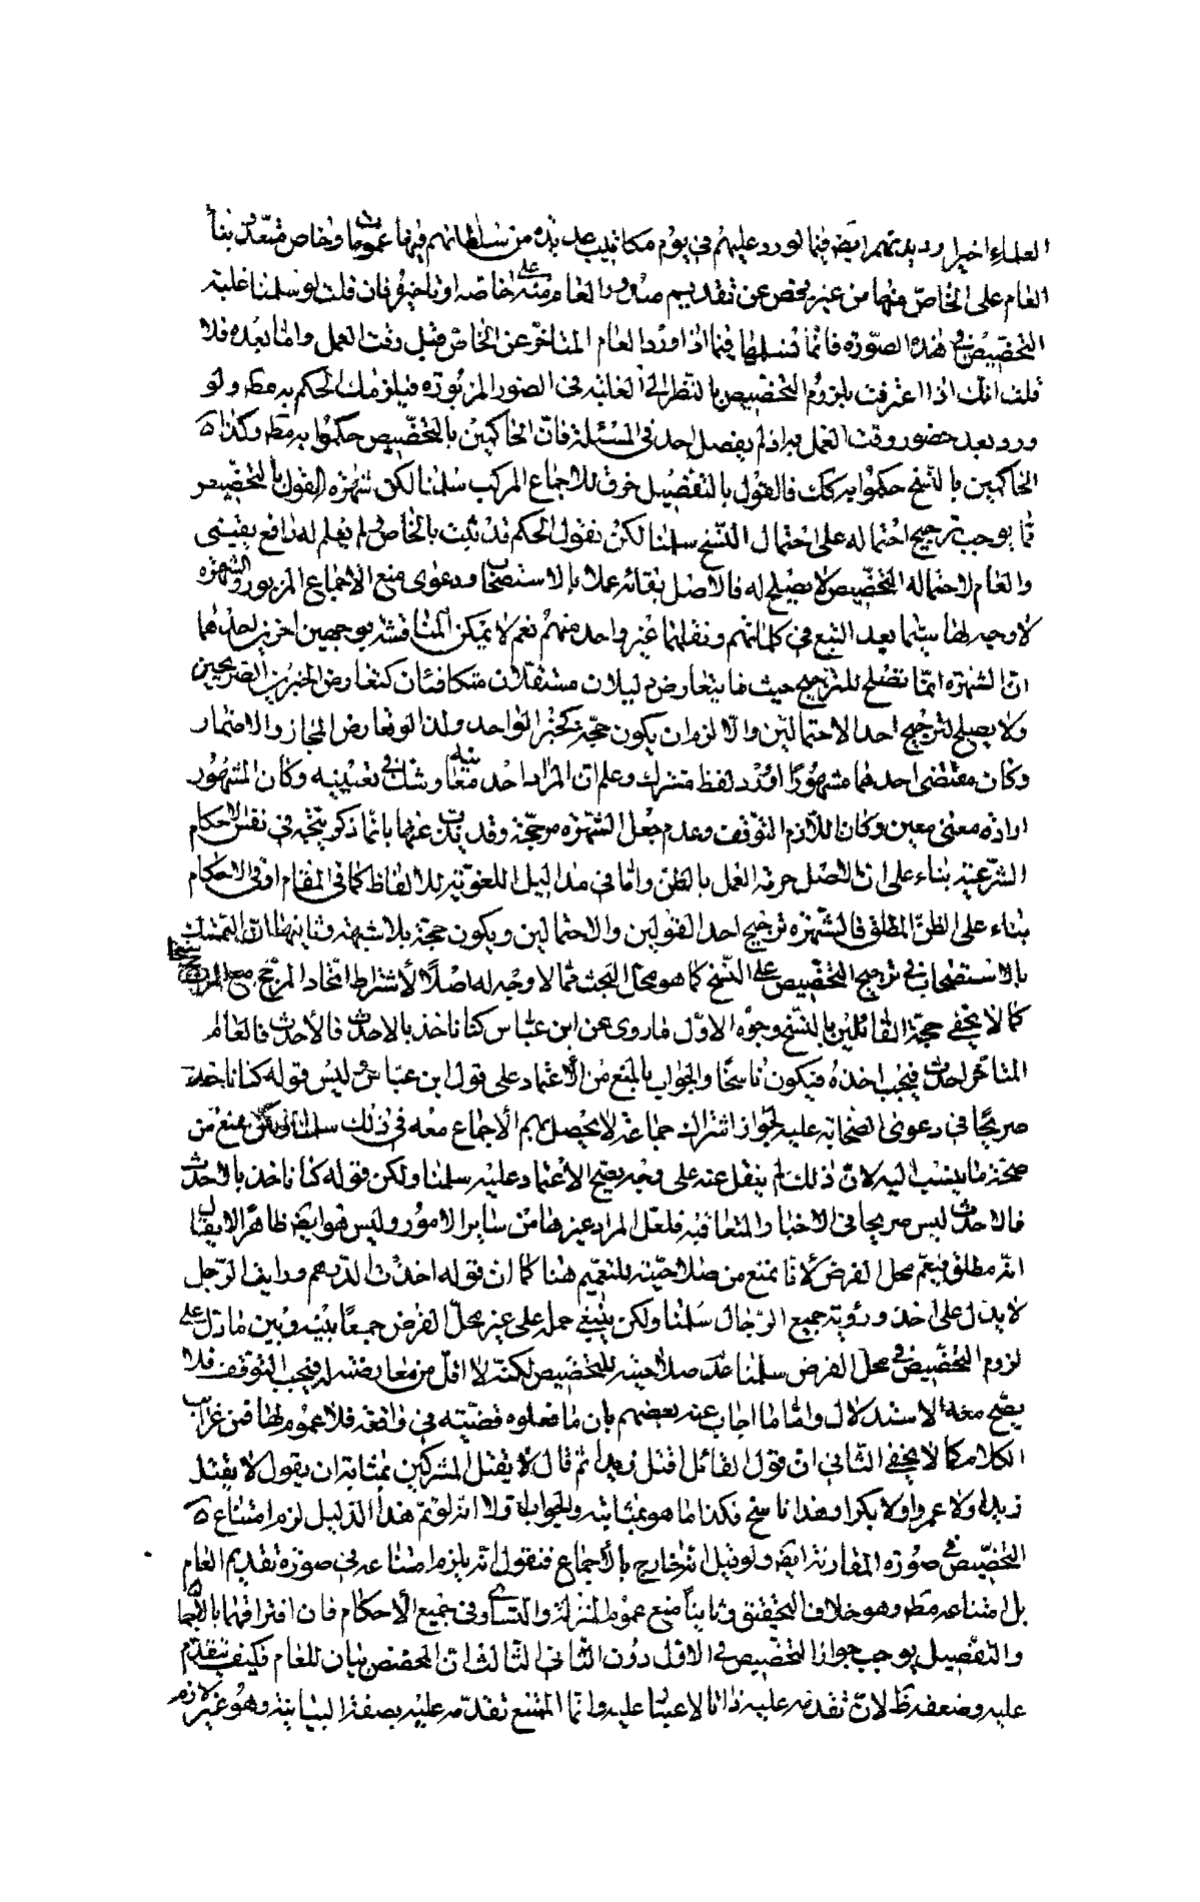 العلماء اخيار وديدنهم ايض فيما لو ورد عليهم في يوم مكاتيب عديدة من سلطانهم فيها عمومات وخاص متعدد بناء
العام على الخاص منهما من غير فحص عن تقديم صدور العام منه على خاصه او تاخيره فان قلت لو سلمنا غلبة
التخصيص في هذه الصورة فانما نسلمها فيما اذا ورد العام المتاخر عن الخاص قبل وقت العمل واما بعده فلا
قلت انك اذا اعترفت بلزوم التخصيص بالنظر الى الغلبة في الصور المزبورة فيلزمك الحكم به مط ولو
ورد بعد حضور وقت العمل به اذ لم يفصل احد في المسئلة فان الحاكمين بالتخصيص حكموا به مط وكذا
الحاكمين بالنسخ حكموا به كك فالقول بالتفصيل خرق للاجماع المركب سلمنا لكن شهرة القول بالتخصيص
مما يوجب ترجيح احتماله على احتمال النسخ سلمنا لكن نقول الحكم قد ثبت بالخاص ولم يعلم له رافع يقيني
والعام لاحتماله التخصيص لا يصلح له فالاصل بقائه عملا بالاستصحاب ودعوى منع الاجماع المزبور والشهرة
لا وجه لها سيما بعد التتبع في كلماتهم ونقلهما غير واحد منهم نعم لا يمكن المناقشة بوجهين اخرين احدهما
ان الشهرة انما تصلح للترجيح حيث ما يتعارض دليلان مستقلان متكافئان كتعارض الخبرين الصريحين
ولا يصلح لترجيح احد الاحتمالين والا لزم ان يكون حجة كخبر الواحد ولذا لو تعارض المجاز والاضمار
وكان مقتضى احدهما مشهورا او ورد لفظ مشترك وعلم ان المراد احد معانيه وشك في تعيينه وكان المشهور
ارادة معنى معين وكان اللازم التوقف وعدم جعل الشهرة مرجحة وقد يذب عنها بانما ذكر يتجه في نفس الاحكام
الشرعية بناء على ان الاصل حرمة العمل بالظن واما في مداليل اللغوية للالفاظ كما في المقام او في الاحكام
بناء على الظن المطلق فالشهرة ترجيح احد القولين والاحتمالين ويكون حجة بلا شبهة وثانيهما ان التمسك
بالاستصحاب في ترجيح التخصيص على النسخ كما هو محل البحث مما لا وجه له اصلا لاشتراط اتحاد المرجح مع المرجح
كما لا يخفى حجة القائلين بالنسخ وجوه الاول ما روى عن ابن عباس كنا ناخذ بالاحدث فالاحدث فالعام
المتاخر احدث فيجب اخذه فيكون ناسخا والجواب بالمنع من الاعتماد على قول ابن عباس وليس قوله كنا ناخذ
صريحا في دعوى الصحابة عليه لجواز اشتراك جماعة لا يحصل بهم الاجماع معه في ذلك سلمنا ولكن نمنع من
صحة ما ينسب اليه لان ذلك لم ينقل عنه على وجه يصح الاعتماد عليه سلمنا ولكن قوله كنا ناخذ بالاحدث
فالاحدث ليس صريحا في الاخبار والمتعاقبة فلعل المراد غيرها من ساير الامور وليس هو ايض ظاهرا لا يقال
انه مطلق فيعم محل الفرض لانا نمنع من صلاحيته للتعميم هنا كما ان قوله اخذت الدرهم ورايت الرجل
لا يدل على اخذ ورؤية جميع الرجال سلمنا ولكن ينبغي حمله على غير محل الفرض جمعا بينه وبين ما دل على
لزوم التخصيص في محل الفرض سلمنا عدم صلاحيته للتخصيص لكنه لا اقل من معارضته له فيجب التوقف فلا
يصح معه الاستدلال واما ما اجاب عنه بعضهم بان ما فعلوه قضيته في واقعة فلا عموم لها فمن غرايب
الكلام كما لا يخفى الثاني ان قول القائل اقتل زيدا ثم قال لا يقتل المشركين بمثابة ان يقول لا يقتل
زيدا ولا عمروا ولا بكرا وهذا ناسخ فكذا ما هو بمثابته والجواب اولا انه لو تم هذا الدليل لزم امتناع
التخصيص في صورة المقارنة ايض ولو قيل انه خارج بالاجماع فنقول انه يلزم امتناعه في صورة تقديم العام
بل امتناعه مط وهو خلاف التحقيق وثانيا منع عموم المنزلة والتساوي في جميع الاحكام فان افتراقهما بالاجمال
والتفصيل يوجب جواز التخصيص في الاول دون الثاني الثالث ان المخصص بيان للعام فكيف يتقدم
عليه وضعفه ظ لان تقدمه عليه ذاتا لا عبا عليه وانما الممتنع تقدمه عليه بصفة البيانية وهو غير لازم